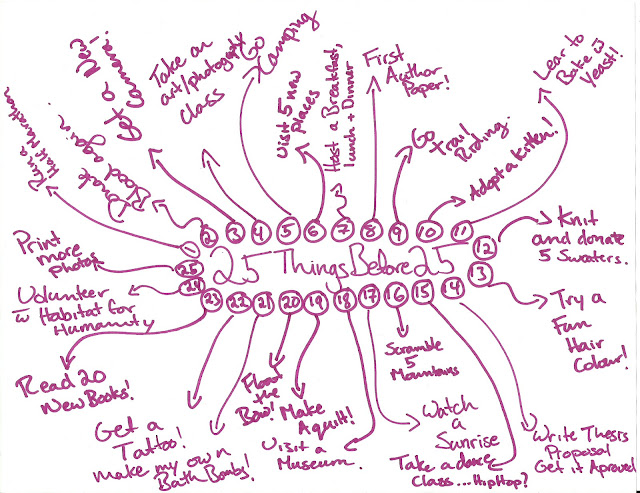 25 Things Before 25
1
Run a
Half Marathon
2
Donate
Blood again.
3
Get a New
Camera!
4
Take an
art/photography
class
5
Go
Camping
6
Visit 5 new
places
7
Host a Breakfast,
Lunch + Dinner
8
First
Author
Paper!
9
Go
Trail
Riding.
10
Adopt a Kitten!
11
Lear to
Bake w̄
Yeast!
12
Knit
and donate
5 Sweaters.
13
Try a
Fun
Hair
Colour!
14
Write Thesis
Proposal
Get it Aproved
15
Take a dance
Class...HipHop?
16
Scramble
5
Mountains
17
Watch
a
Sunrise
18
Visit a
Museum.
19
Make
A quilt!
20
Floor
the
Bow!
21
make my own
Bath Bombs!
22
Get a
Tattoo!
23
Read 20
New Books!
24
Volunteer
w̄ Habitat for
Humanity
25
Print
more
photos